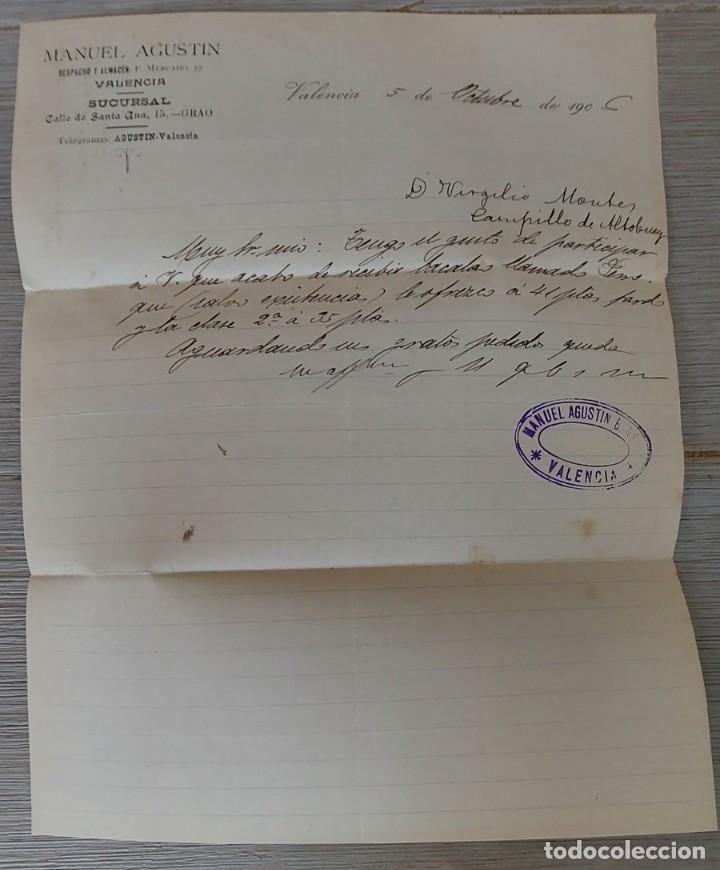 MANUEL AGUSTIN
DESPACHO Y ALMACÉN: P. MERCADO, 37
VALENCIA
SUCURSAL
Calle de Santa Ana, 15.—GRAO
Telegramas: AGUSTIN-Valencia
Valencia 5 de Octubre de 1906
D Virgilio Montes
Campillo de Altobuey
Muy Sr. mio: Tengo el gusto de participar
á V. que acabo de recibir bacalao llamado
que (salvo existencias) le ofrezco á 41 ptas fardo
y la clase 2ª á 35 ptas.
Aguardando sus gratos pedido queda
q b s m
MANUEL AGUSTIN
* VALENCIA *
todocoleccion